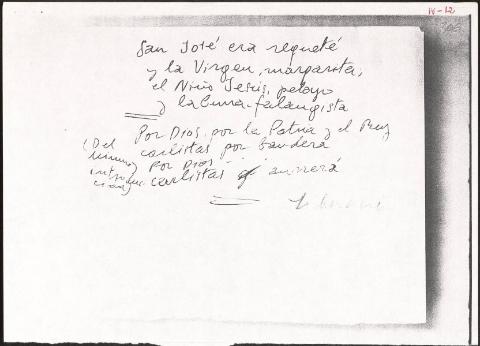 IV-12
San José era requeté
y la Virgen, margarita,
el Niño Jesús, pelayo
y la burra falangista
Por Dios, por la Patria y el Rey
carlistas por bandera
(Del
Por Dios
carlistas aurrerá